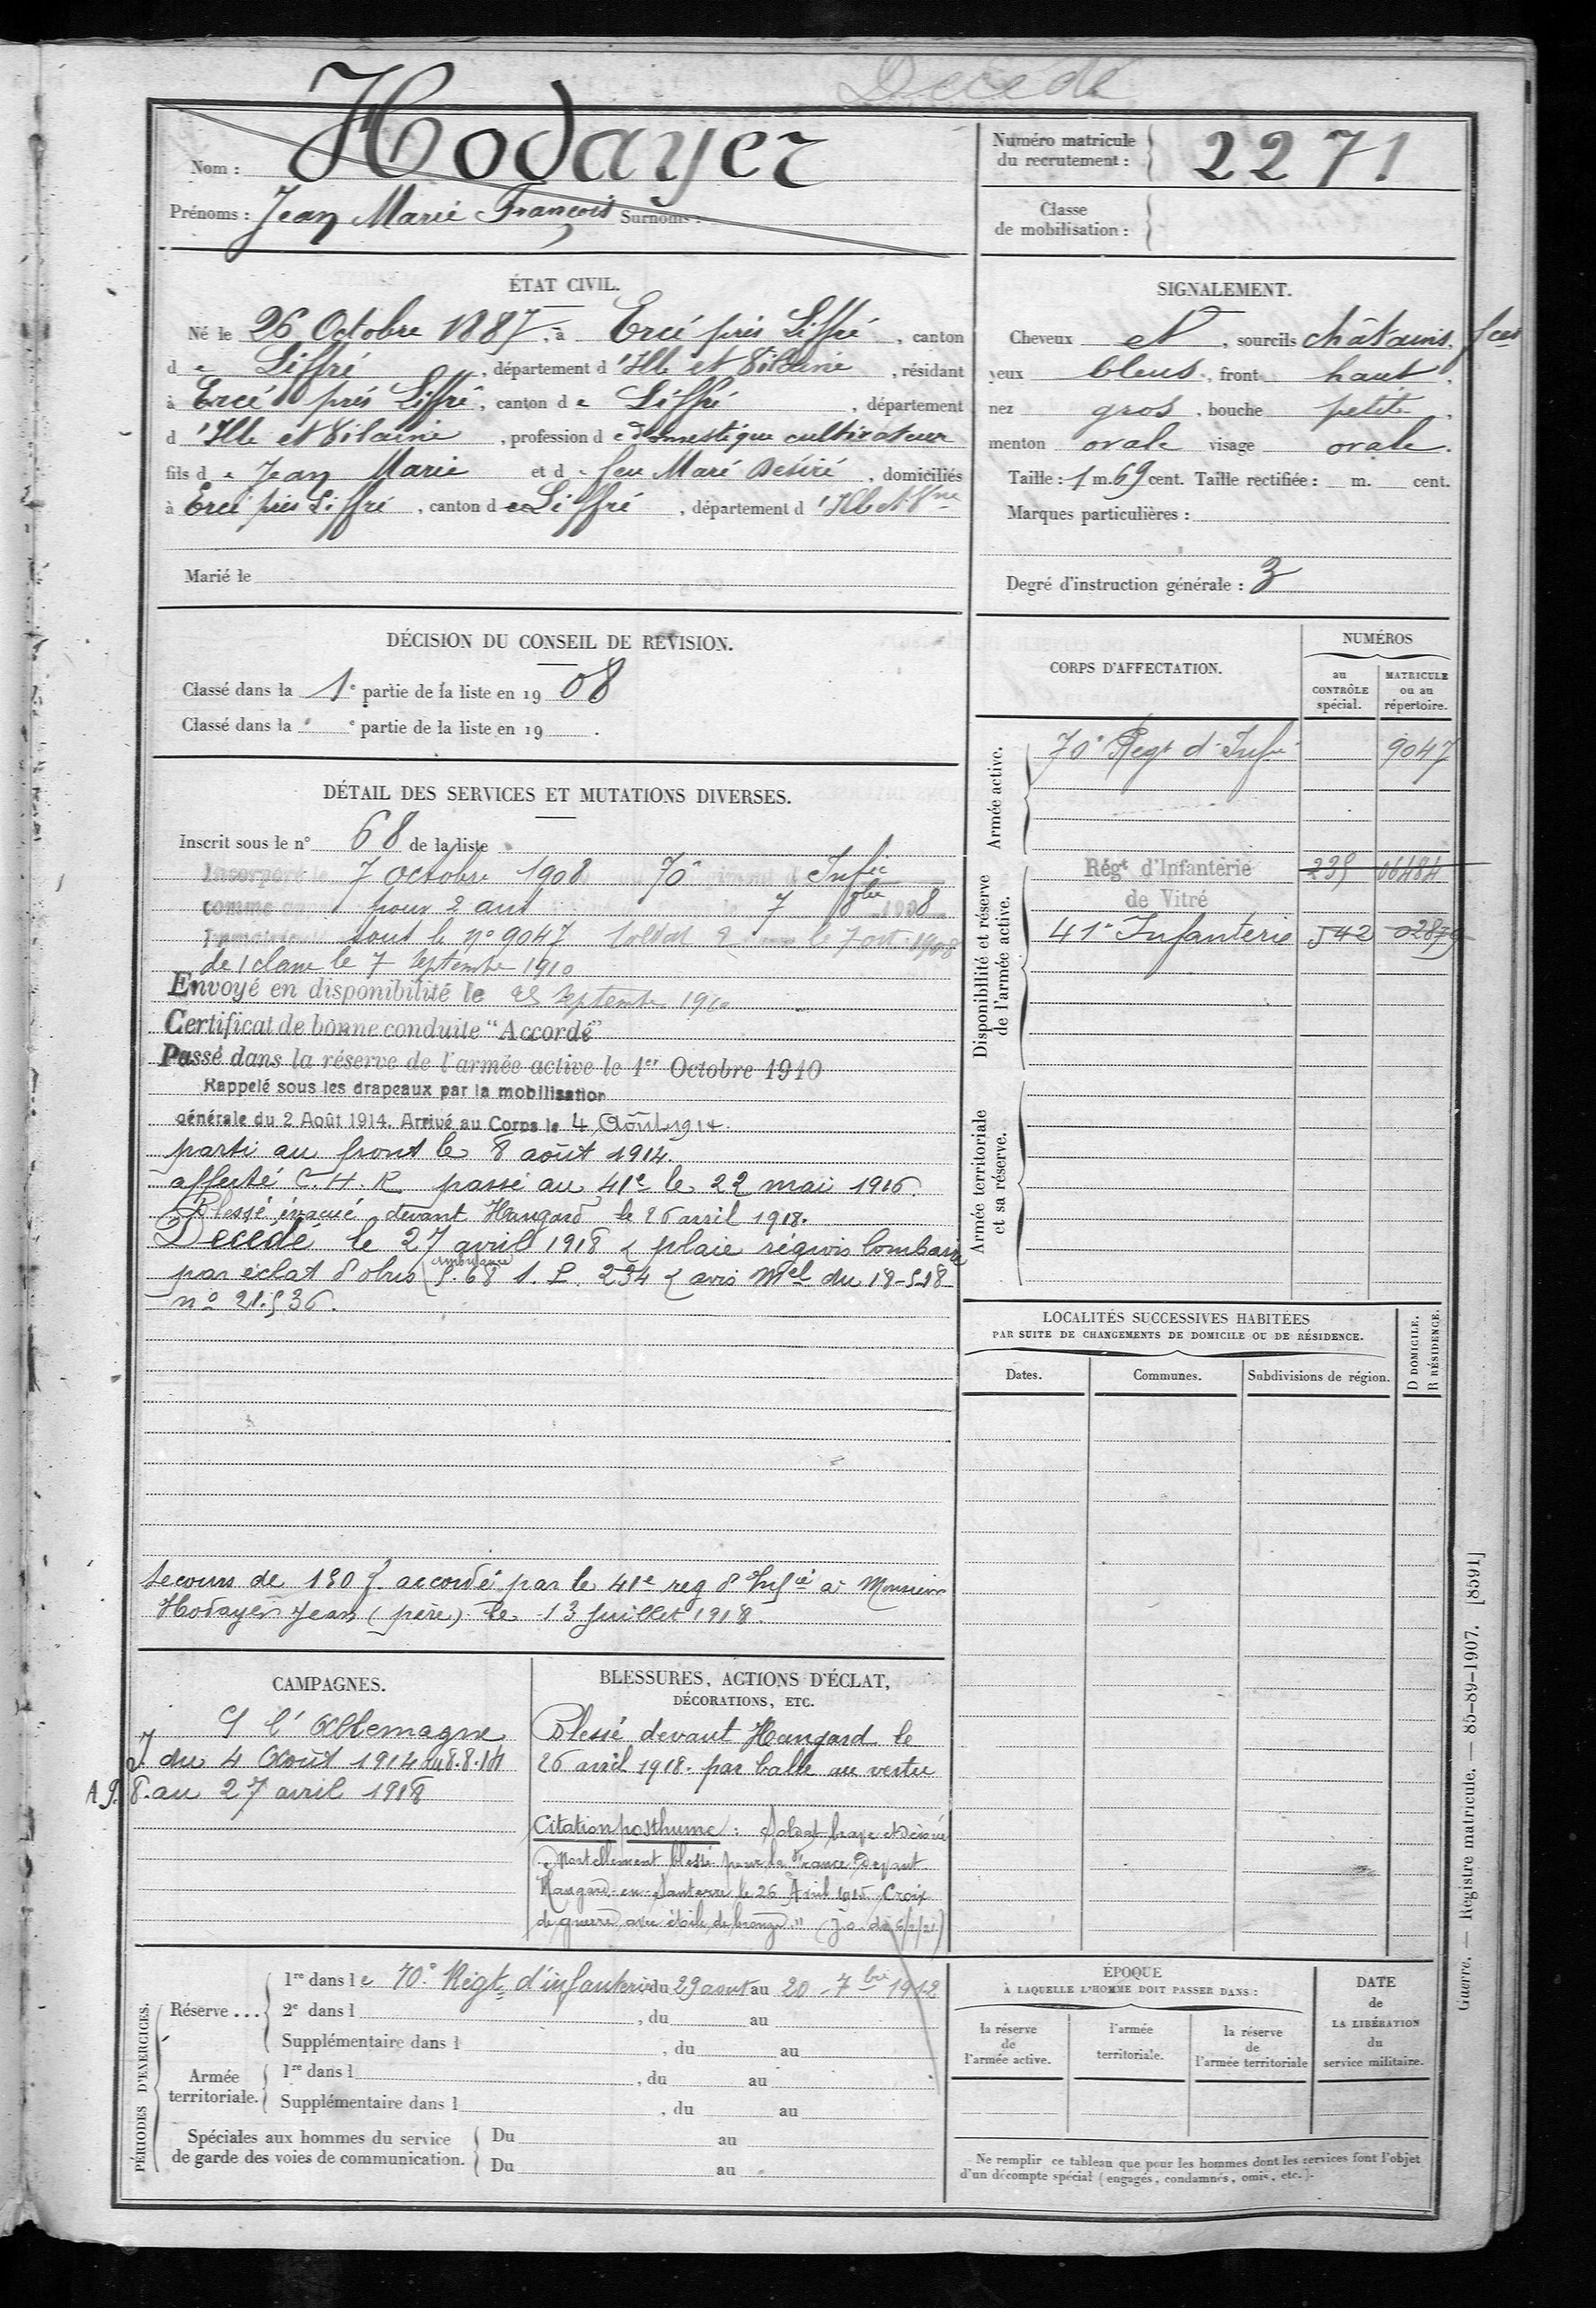 Décédé
Nom : Hodayer
Prénoms : Jean Marie François Surnoms :
Numéro matricule
du recrutement : 2271
Classe
de mobilisation :
ÉTAT CIVIL.
Né le 26 Octobre 1887, à Ercé près Liffré, canton
de Liffré, département d'Ille et Vilaine, résidant
à Ercé près Liffré, canton de Liffré, département
d'Ille et Vilaine, profession de domestique cultivateur
fils de Jean Marie et d feu Maré Désiré, domiciliés
à Ercé près Liffré, canton de Liffré, département d'Ille et Vne
Marié le
SIGNALEMENT.
Cheveux et, sourcils châtains,
yeux bleus, front haut,
nez gros, bouche petite,
menton ovale visage ovale.
Taille : 1 m. 69 cent. Taille rectifiée : m. cent.
Marques particulières :
Degré d'instruction générale : 3
DÉCISION DU CONSEIL DE REVISION.
Classé dans la 1e partie de la liste en 1908
Classé dans la e partie de la liste en 19 .
DÉTAIL DES SERVICES ET MUTATIONS DIVERSES.
Inscrit sous le n° 68 de la liste
Incorporé le 7 octobre 1908 70e Infie
comme pour 2 ans 7 8bre 1908
sous le n° 9047 Soldat 2 le 7 oct. 1908
de 1 classe le 7 septembre 1910
Envoyé en disponibilité le 25 septembre 1910
Certificat de bonne conduite "Accordé"
Passé dans la réserve de l'armée active le 1er Octobre 1910
Rappelé sous les drapeaux par la mobilisation
générale du 2 Août 1914. Arrivé au Corps le 4 Août 1914.
parti au front le 8 août 1914.
affecté C.H.R. passé au 41e le 22 mai 1916.
Blessé, évacué devant Hangard le 26 avril 1918.
Décédé le 27 avril 1918 plaie région lombaire
par éclat d'obus ambulance S. 68 avis Mel du 18-5-18
n° 21.536.
Secours de 150 f. accordé par le 41e reg d'Infie à Monsieur
Hodayer Jean (père) le 13 juillet 1918.
CORPS D'AFFECTATION.
NUMÉROS
au
CONTRÔLE
spécial.
MATRICULE
ou au
répertoire.
Armée active.
70e Régt d'Infie 9047
Disponibilité et réserve
de l'armée active.
Régt d'Infanterie 235 06484
de Vitré
41e Infanterie 542 02879
Armée territoriale
et sa réserve.
LOCALITÉS SUCCESSIVES HABITÉES
PAR SUITE DE CHANGEMENTS DE DOMICILE OU DE RÉSIDENCE.
Dates.
Communes.
Subdivisions de région.
D DOMICILE.
R RÉSIDENCE.
CAMPAGNES.
C l'Allemagne
J. du 4 Août 1914 au 8.8.14
A 9. 8. au 27 avril 1918
BLESSURES, ACTIONS D'ÉCLAT,
DÉCORATIONS, ETC.
Blessé devant Hangard le
26 avril 1918. par balle au ventre
Citation posthume : Soldat brave et dévoué
Mortellement blessé pour la France devant
Hangard-en-Santerre le 26 Avril 1915 Croix
de guerre avec étoile de bronze." (J.O. du
PÉRIODES D'EXERCICES.
Réserve...
1re dans le 70e Régt d'infanterie du 29 aout au 20 7bre 1912
2e dans l , du au
Supplémentaire dans l , du au
Armée
territoriale.
1re dans l , du au
Supplémentaire dans l , du au
Spéciales aux hommes du service
de garde des voies de communication.
Du au
Du au
ÉPOQUE
À LAQUELLE L'HOMME DOIT PASSER DANS :
la réserve
de
l'armée active.
l'armée
territoriale.
la réserve
de
l'armée territoriale
DATE
de
LA LIBÉRATION
du
service militaire.
Ne remplir ce tableau que pour les hommes dont les services font l'objet
d'un décompte spécial (engagés, condamnés, omis, etc.).
Guerre. — Registre matricule. — 85-89-1907. [8591]